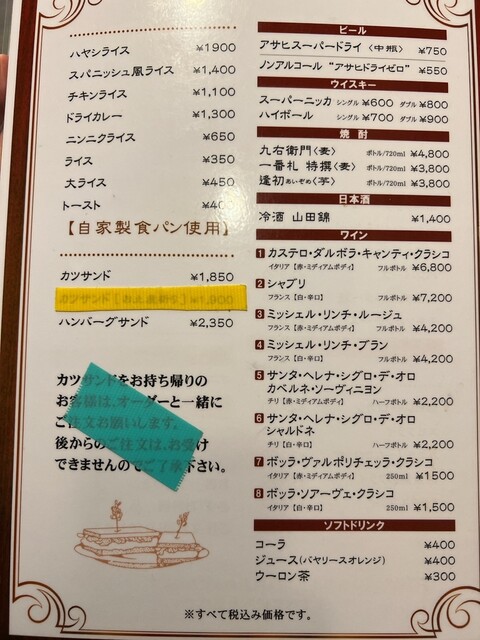 ハヤシライス ¥1900
スパニッシュ風ライス ¥1,400
チキンライス ¥1,100
ドライカレー ¥1,300
ニンニクライス ¥650
ライス ¥350
大ライス ¥450
トースト
【自家製食パン使用】
カツサンド ¥1,850
カツサンド ¥1,900
ハンバーグサンド ¥2,350
カツサンドをお持ち帰りの
お客様は、オーダーと一緒に
ご注文お願いします。
後からのご注文は、お受け
できませんのでご了承下さい。
ビール
アサヒスーパードライ〈中瓶〉 ¥750
ノンアルコール“アサヒドライゼロ” ¥550
ウイスキー
スーパーニッカ シングル ¥600 ダブル ¥800
ハイボール シングル ¥700 ダブル ¥900
焼酎
九右衛門〈麦〉 ボトル/720ml ¥4,800
一番札 特撰〈麦〉 ボトル/720ml ¥3,800
逢初あいぞめ〈芋〉 ボトル/720ml ¥3,800
日本酒
冷酒 山田錦 ¥1,400
ワイン
1 カステロ・ダルボラ・キャンティ・クラシコ
イタリア【赤・ミディアムボディ】 フルボトル ¥6,800
2 シャブリ
フランス【白・辛口】 フルボトル ¥7,200
3 ミッシェル・リンチ・ルージュ
フランス【赤・ミディアムボディ】 フルボトル ¥4,200
4 ミッシェル・リンチ・ブラン
フランス【白・辛口】 フルボトル ¥4,200
5 サンタ・ヘレナ・シグロ・デ・オロ
カベルネ・ソーヴィニヨン
チリ【赤・ミディアムボディ】 ハーフボトル ¥2,200
6 サンタ・ヘレナ・シグロ・デ・オロ
シャルドネ
チリ【白・辛口】 ハーフボトル ¥2,200
7 ボッラ・ヴァルポリチェッラ・クラシコ
イタリア【赤・ミディアムボディ】 250ml ¥1500
8 ボッラ・ソアーヴェ・クラシコ
イタリア【白・辛口】 250ml ¥1,500
ソフトドリンク
コーラ ¥400
ジュース(バヤリースオレンジ) ¥400
ウーロン茶 ¥300
※すべて税込み価格です。